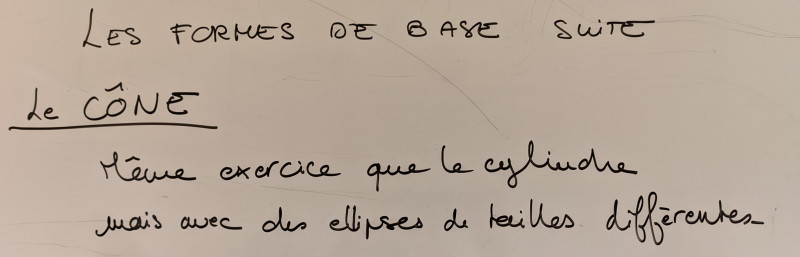 LES FORMES DE BASE SUITE
Le CÔNE
Même exercice que le cylindre
mais avec des ellipses de tailles différentes